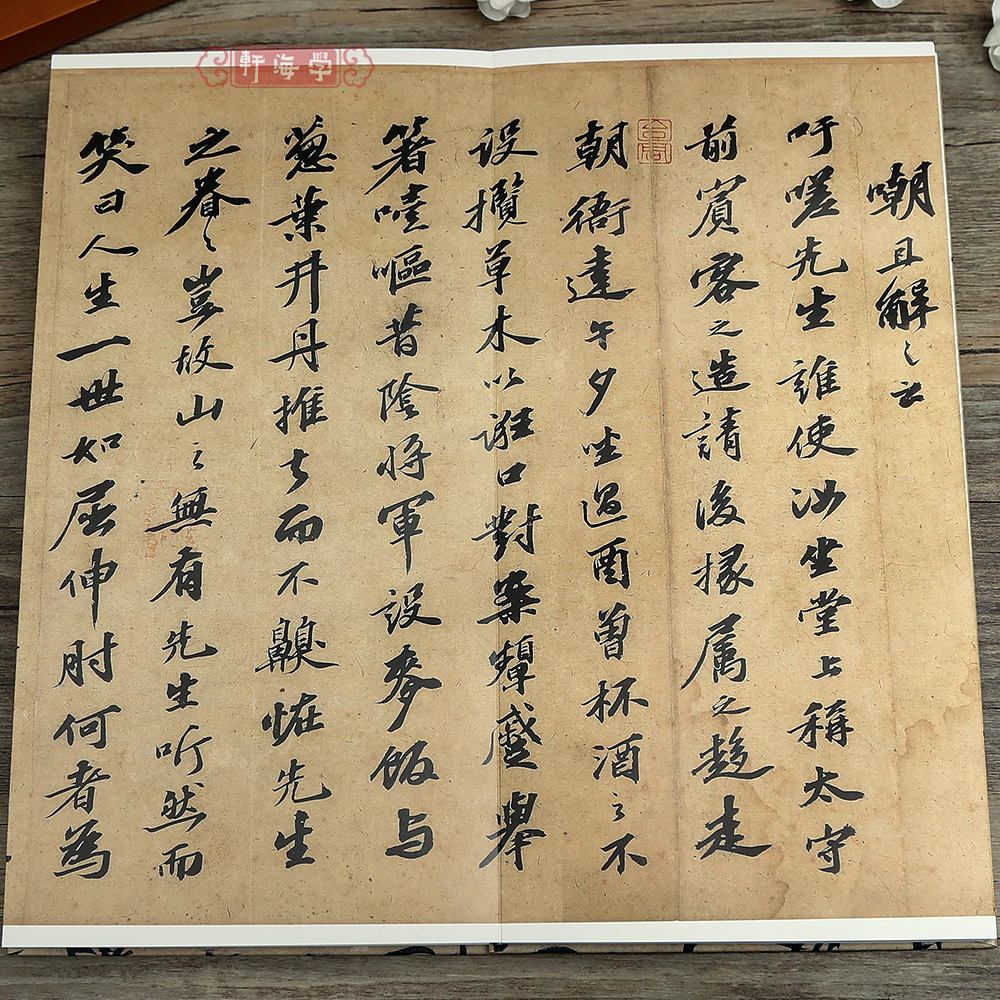 學海軒
嘲且解之云
吁嗟先生誰使汝坐堂上稱太守
前賓客之造請後掾屬之趍走
朝衙達午夕坐過酉曾杯酒之不
設攬草木以誑口對案顰蹙舉
箸噎嘔昔陰將軍設麥飯与
蔥葉井丹推去而不齅怪先生
之眷々豈故山之無有先生听然而
笑曰人生一世如屈伸肘何者為